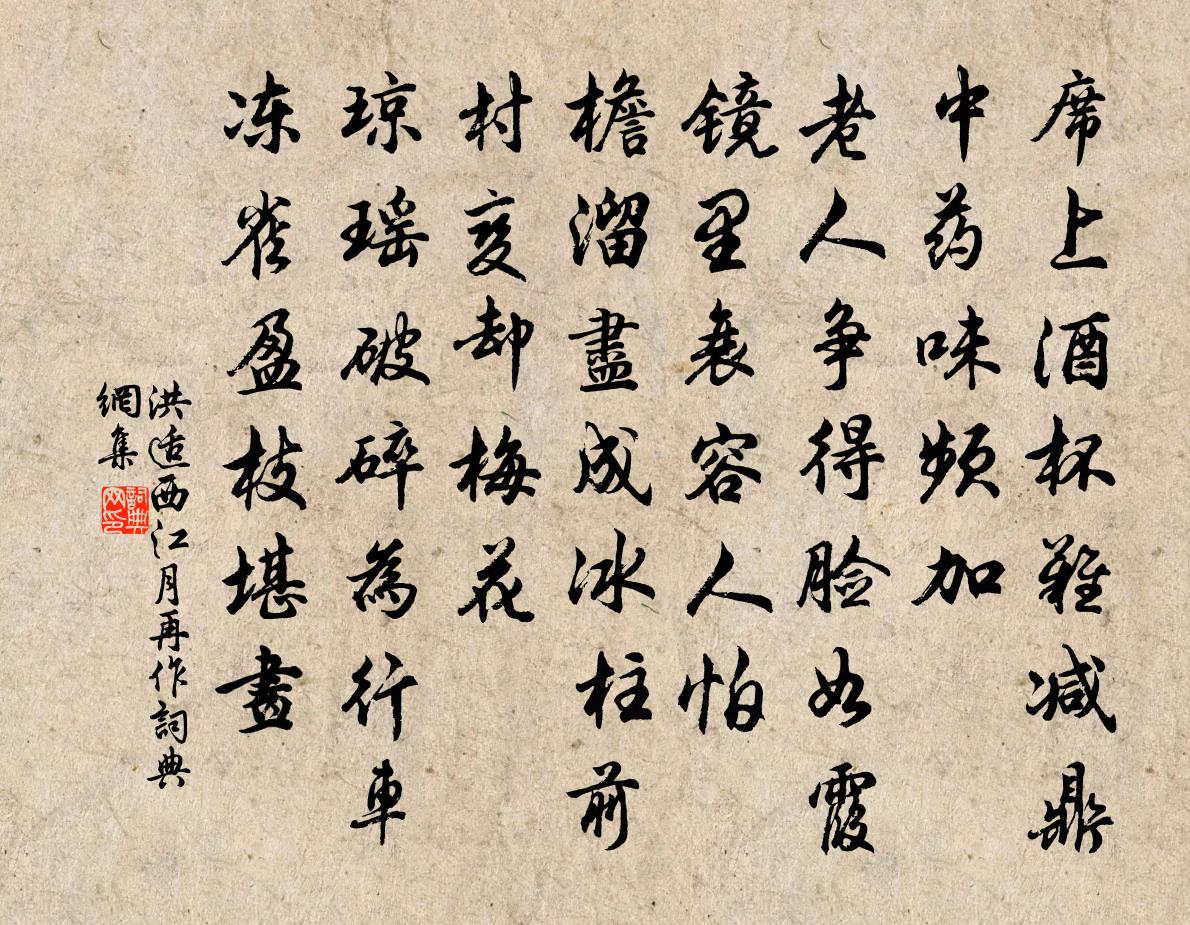 席上酒杯難减鼎
中药味頻加
老人争得脸如霞
镜里衰容人怕
檐溜盡成冰柱前
村变却梅花
琼瑶破碎為行車
冻雀盈枝堪畫
洪适西江月再作詞典
網集
詞典
网印